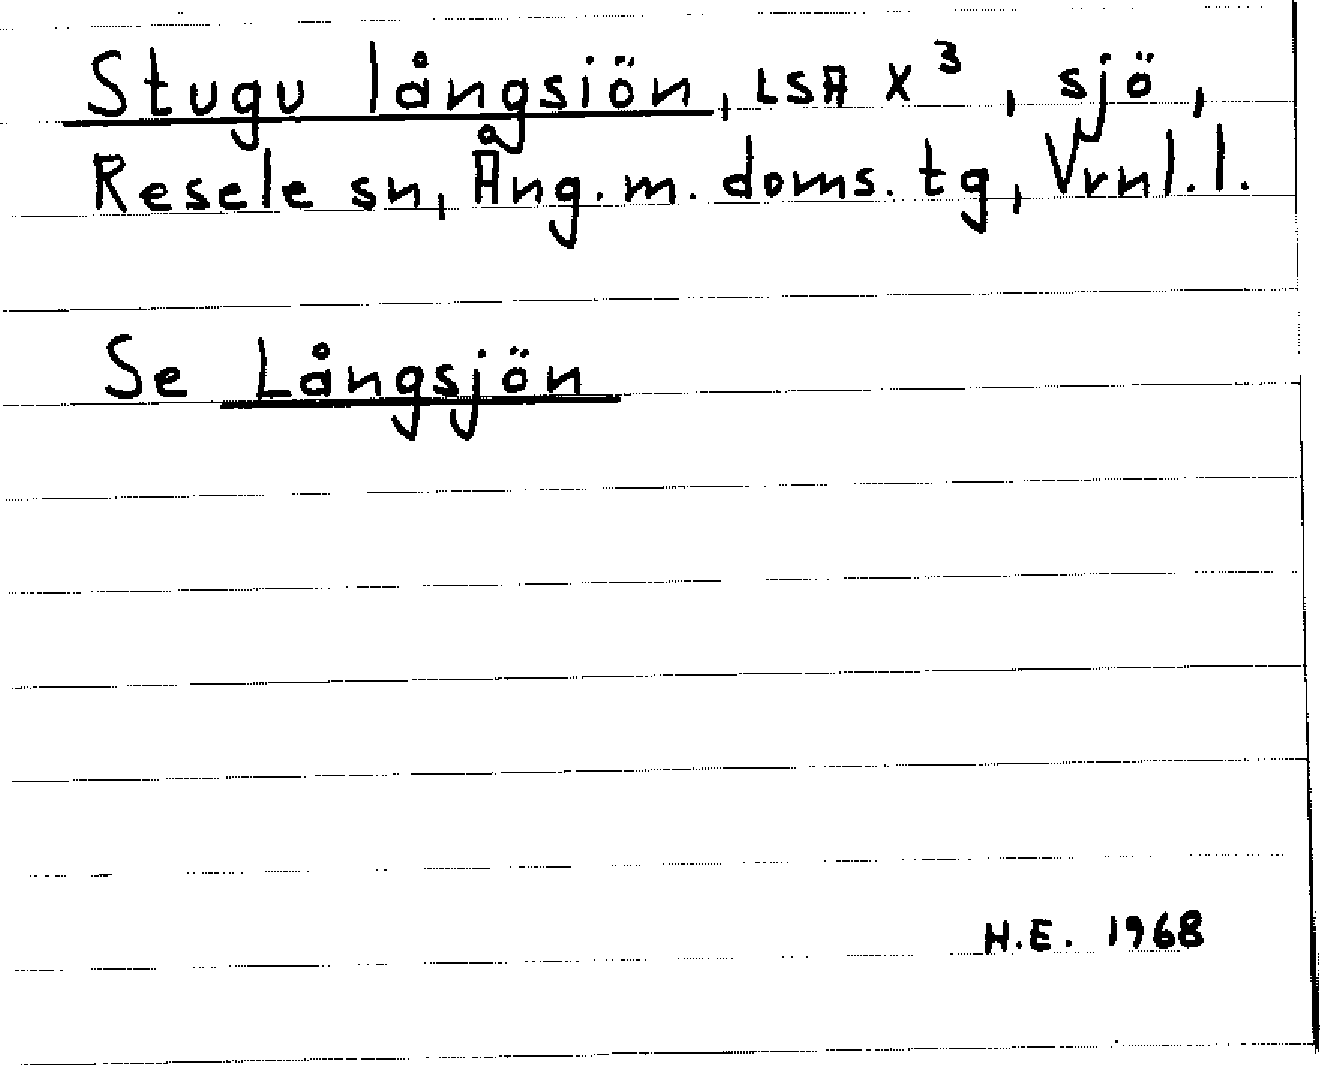 Stugu långsjön, LSA X³, sjö,
Resele sn, Ång. m. doms. tg, Vrnl. l.
Se Långsjön
H.E. 1968